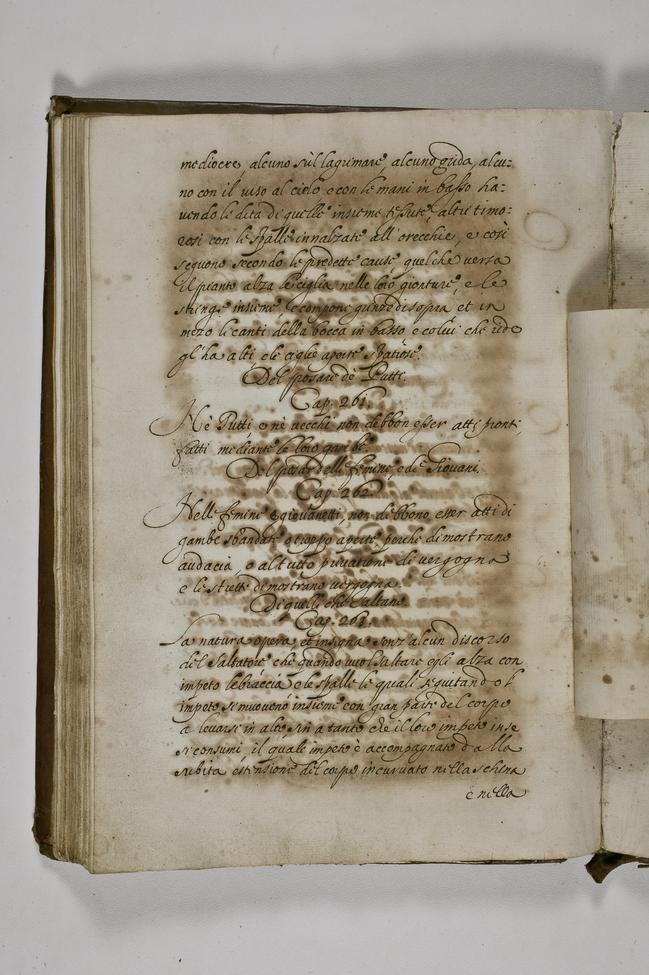 mediocre, alcuno sù'l lagrimare, alcuno grida, alcu:
no con il viso al cielo e con le mani in basso ha:
vendo le dita di quelle insieme tessute, altri timo:
rosi con le spalle innalzate all'orecchie, e così
seguono secondo le predette cause, quel che versa
il pianto alza le ciglia nelle loro gionture, e le
stringe insieme, e compone grinze di sopra et in
mezo li canti della bocca in basso e colui che ride
gl'ha alti e le ciglie aperte spatiose.
Del posare de Putti.
Cap. 261.
Ne Putti e ne vecchi non debbon esser atti pronti
fatti mediante le loro gambe
Del posar delle femine, e de Giovani.
Cap. 262.
Nelle femine e giovanetti, non debbono esser atti di
gambe sbandate, o troppo aperte, perche dimostrano
audacia, e al tutto privatione di vergogna
e le strette dimostrano vergogna.
Di quelli che saltano.
Cap. 263.
La natura opera, et insegna senz'alcun discorso
del saltatore che quando vuol saltare egli alza con
impeto le braccia, e le spalle le quali seguitando l'
impeto si muoveno insieme con gran parte del corpo
a levarsi in alto sin a tanto che il loro impeto in se
si consumi il quale impeto è accompagnato dalla
subita estensione del corpo incurvato nella schena
e nella